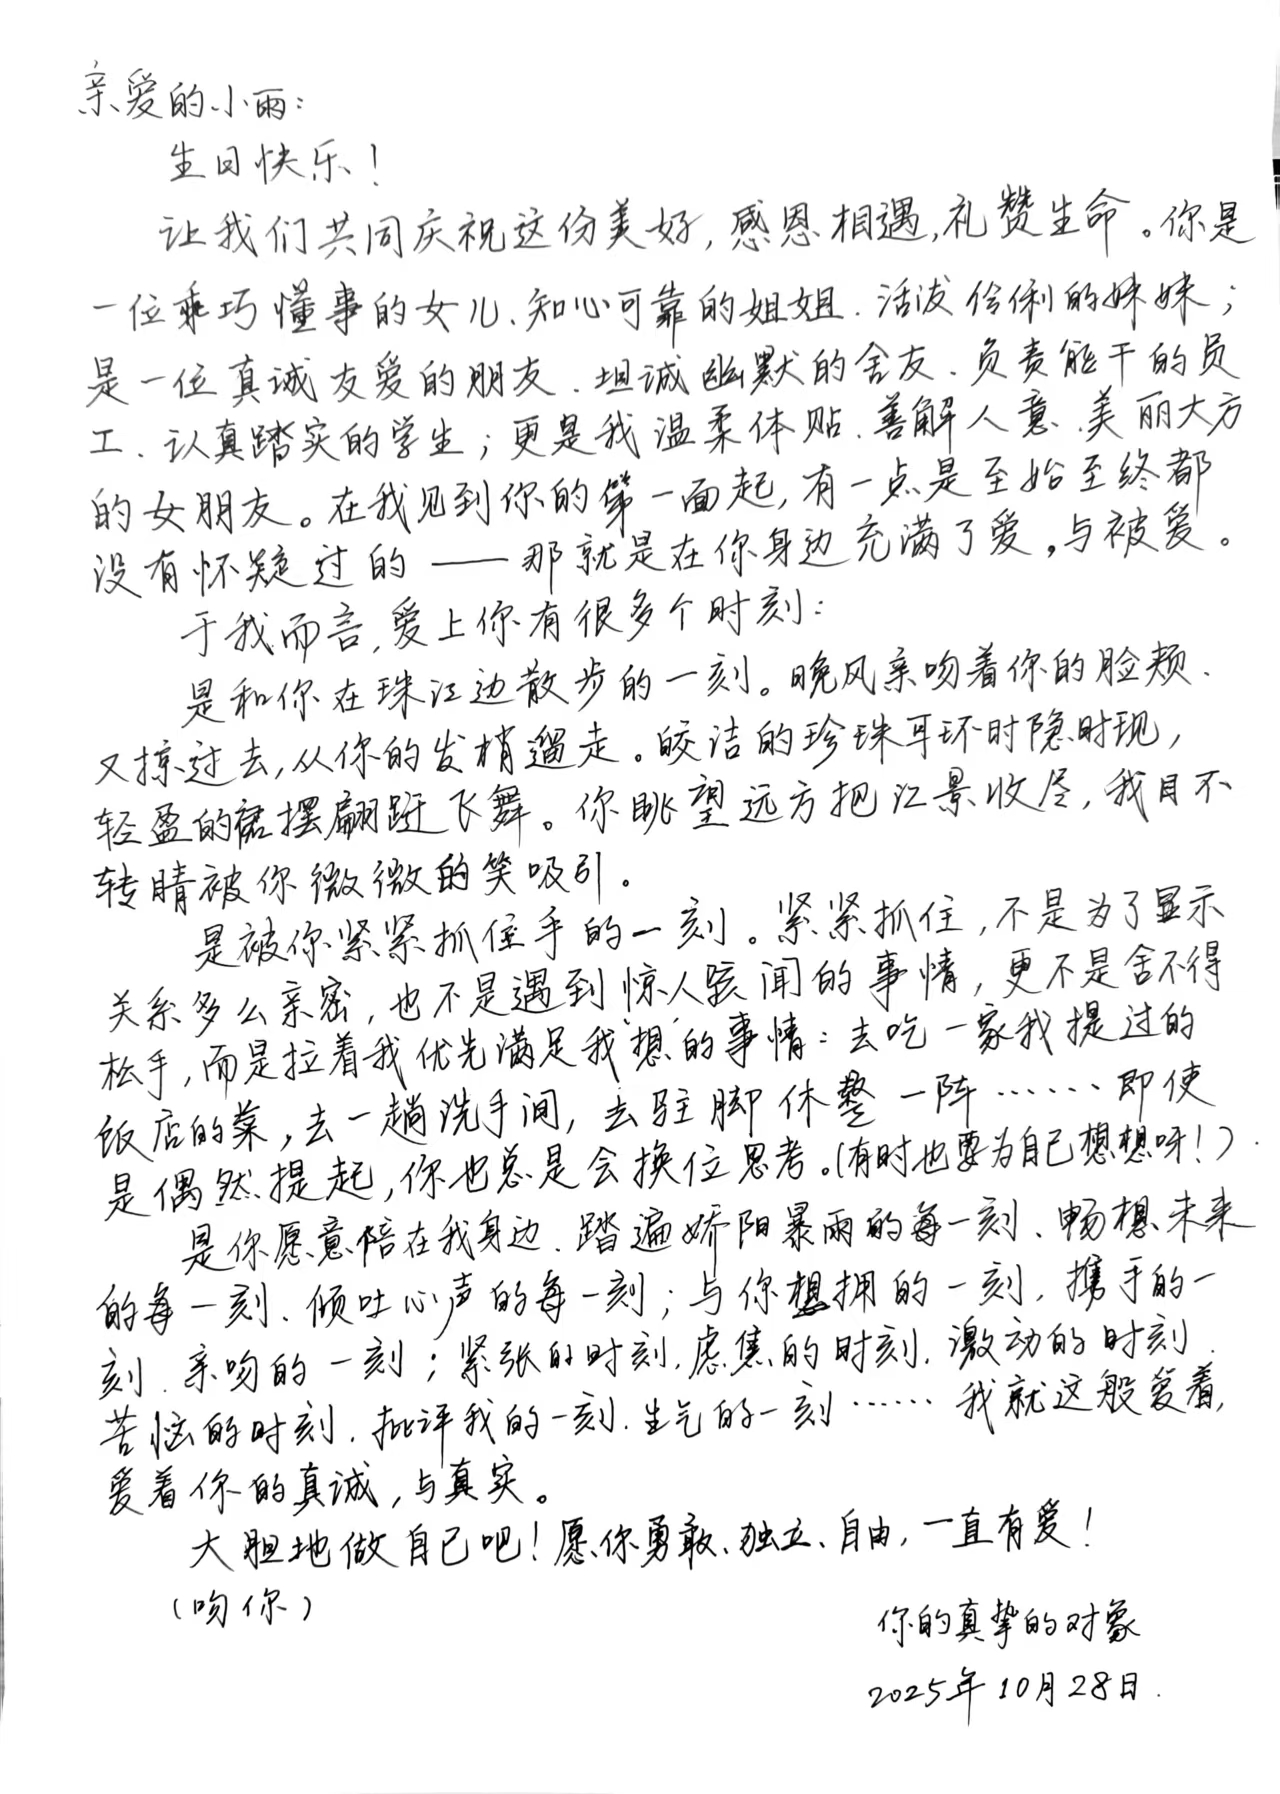 亲爱的小雨：
生日快乐！
让我们共同庆祝这份美好，感恩相遇，礼赞生命。你是
一位乖巧懂事的女儿、知心可靠的姐姐、活泼伶俐的妹妹；
是一位真诚友爱的朋友、坦诚幽默的舍友、负责能干的员
工、认真踏实的学生；更是我温柔体贴、善解人意、美丽大方
的女朋友。在我见到你的第一面起，有一点是至始至终都
没有怀疑过的——那就是在你身边充满了爱，与被爱。
于我而言，爱上你有很多个时刻：
是和你在珠江边散步的一刻。晚风亲吻着你的脸颊、
又掠过去，从你的发梢遛走。皎洁的珍珠耳环时隐时现，
轻盈的裙摆翩跹飞舞。你眺望远方把江景收尽，我目不
转睛被你微微的笑吸引。
是被你紧紧抓住手的一刻。紧紧抓住，不是为了显示
关系多么亲密，也不是遇到惊人骇闻的事情，更不是舍不得
松手，而是拉着我优先满足我“想”的事情：去吃一家我提过的
饭店的菜，去一趟洗手间，去驻脚休整一阵……即使
是偶然提起，你也总是会换位思考。（有时也要为自己想想呀！）
是你愿意陪在我身边、踏遍娇阳暴雨的每一刻、畅想未来
的每一刻、倾吐心声的每一刻；与你想拥的一刻、携手的一
刻、亲吻的一刻；紧张的时刻、虑焦的时刻、激动的时刻、
苦恼的时刻、批评我的一刻、生气的一刻……我就这般爱着，
爱着你的真诚，与真实。
大胆地做自己吧！愿你勇敢、独立、自由，一直有爱！
（吻你）
你的真挚的对象
2025年10月28日.